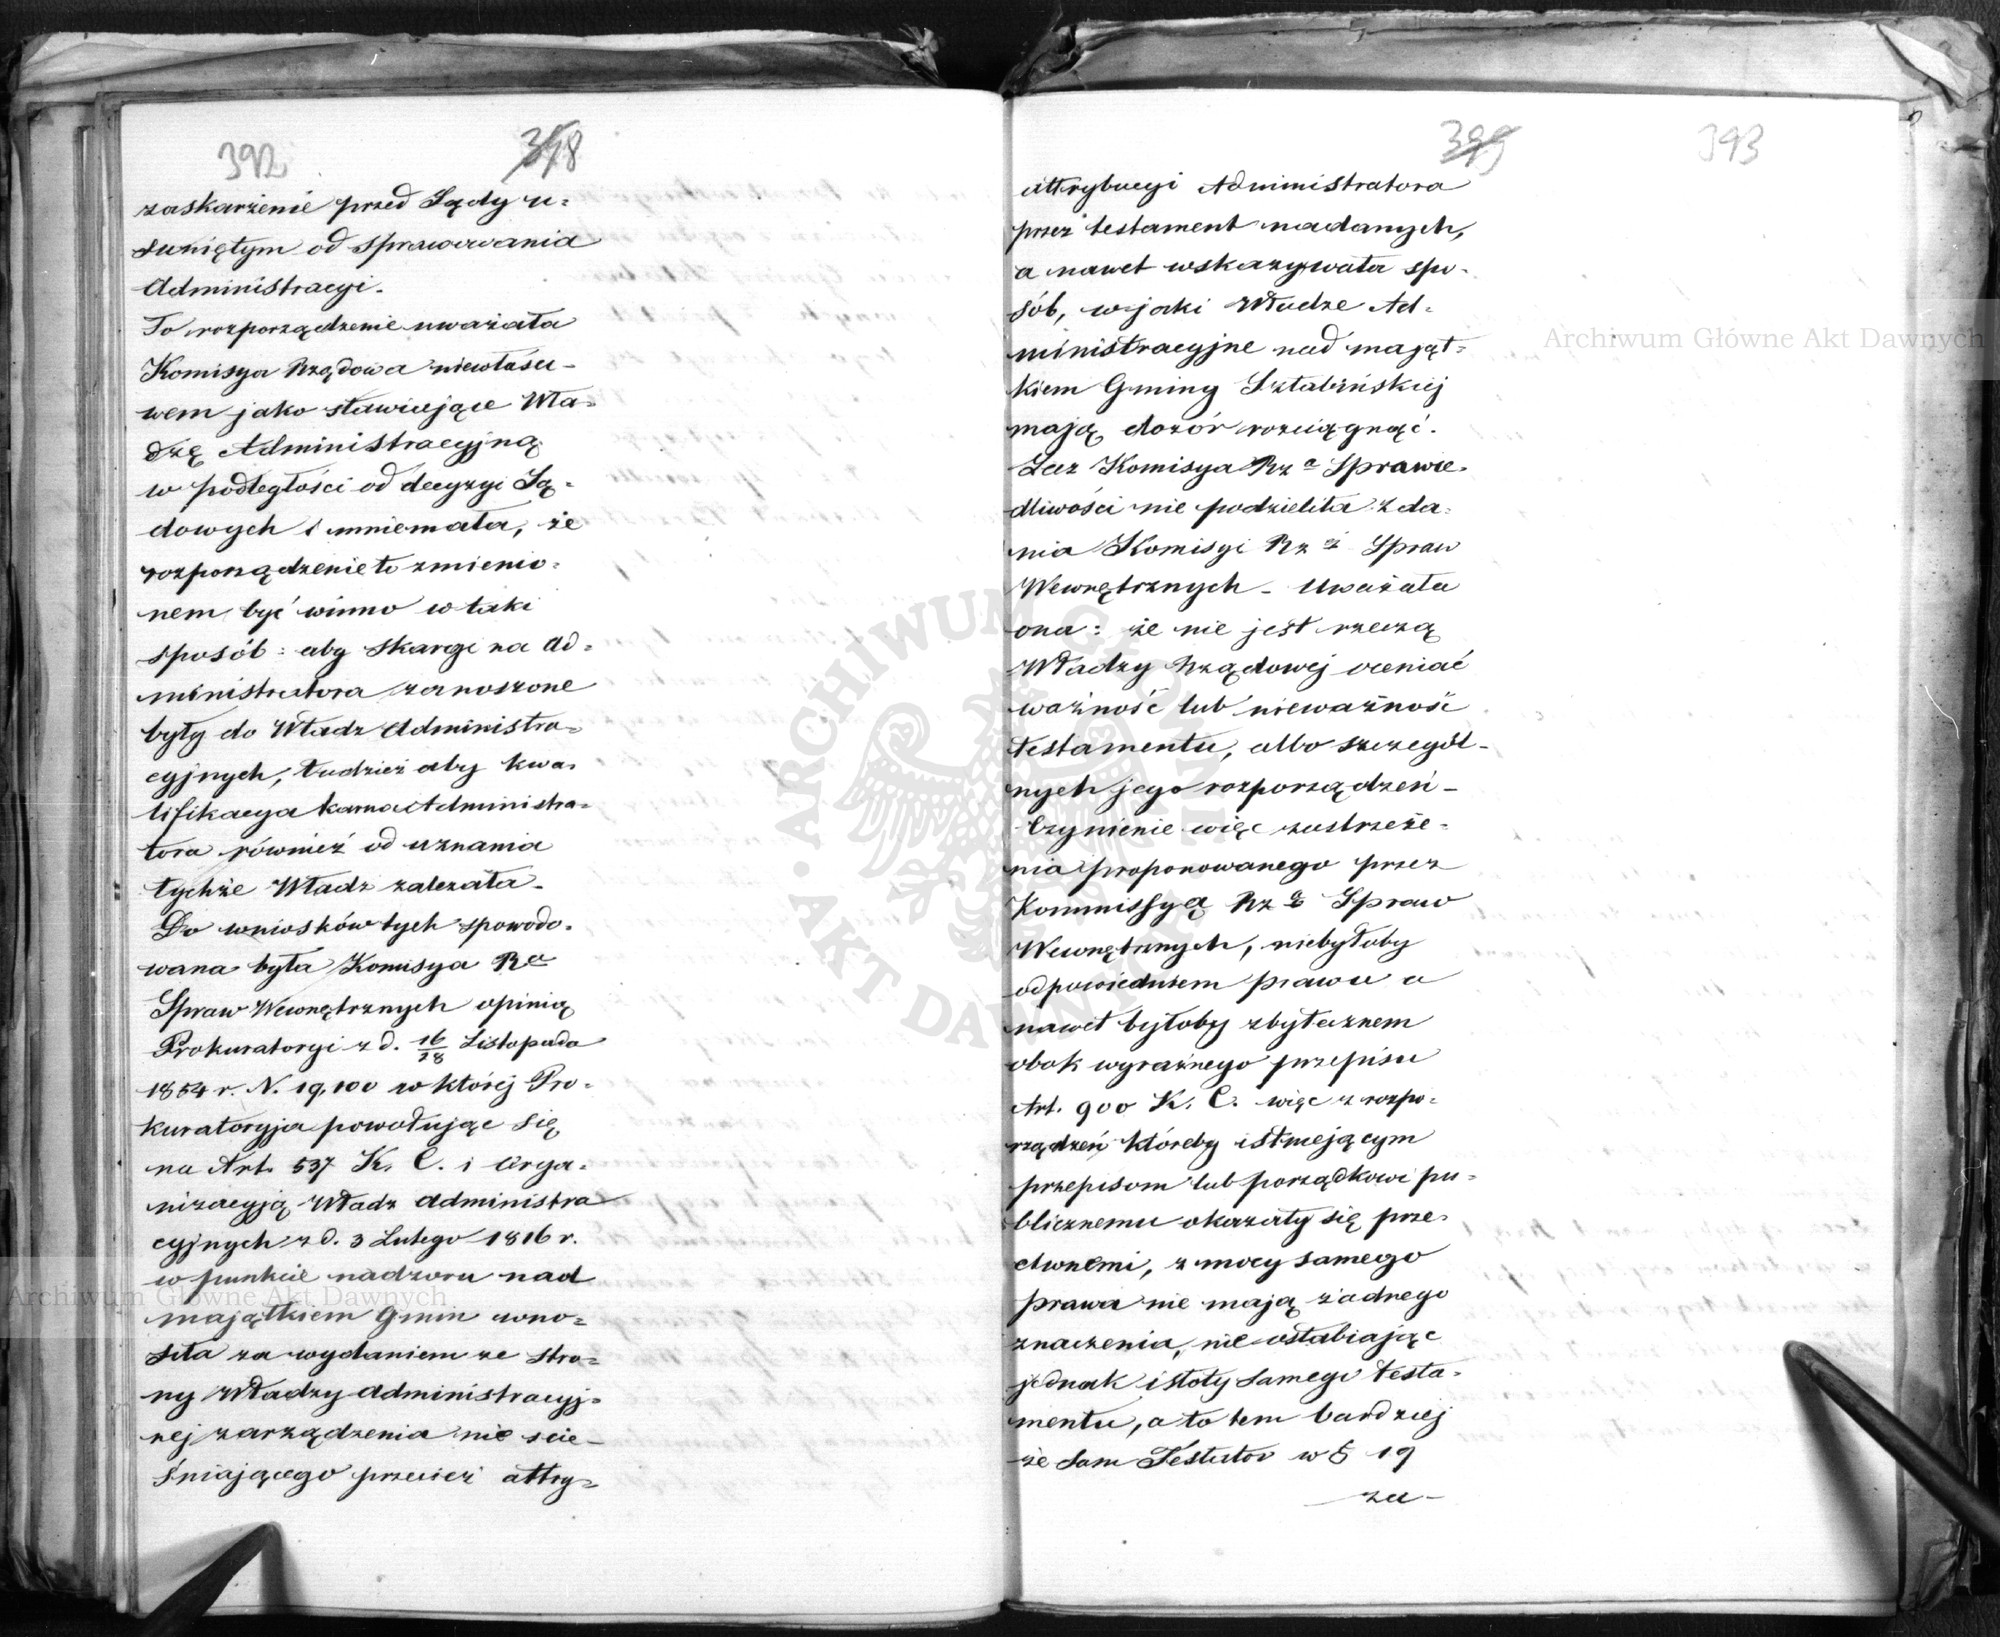 392 398
zaskarżenie przed Sądy u=
suniętym od sprawowania
Administracyi.
To rozporządzenie uważała
Komisya Rządowa niewłaści=
wem jako stawiające Wła=
dzę Administracyjną
w podległości od decyzyi Są=
dowych i mniemała, że
rozporządzenie to zmienio=
nem być winno w taki
sposób: aby skargi na Ad=
ministratora zanoszone
były do Władz Administra=
cyjnych, tudzież aby kwa=
lifikacya karna Administra=
tora również od uznania
tychże Władz zależała.
Do wniosków tych spowodo=
wana była Komisya Ra
Spraw Wewnętrznych opinią
Prokuratoryi z d. 16/28 Listopada
1854 r. N. 19,100 w której Pro=
kuratoryja powołując się
na Art. 537 K. C. i Orga=
nizacyją Władz administra
cyjnych z d. 3 Lutego 1816 r.
w punkcie nadzoru nad
majątkiem Gmin wno=
siła za wydaniem ze stro=
ny Władzy administracyj=
nej zarządzenia nie ście=
śniającego przecież attry=
399 393
attrybucyi Administratora
przez testament nadanych,
a nawet wskazywała spo=
sób, w jaki Władze Ad=
ministracyjne nad mająt=
kiem Gminy Sztabińskiej
mają dozór rozciągnąć.
Lecz Komisya Rza Sprawie=
dliwości nie podzieliła zda=
nia Komisyi Rzéj Spraw
Wewnętrznych - Uważała
ona: że nie jest rzeczą
Władzy Rządowej oceniać
ważność lub nieważność
testamentu, albo szczegól=
nych jego rozporządzeń -
Czynienie więc zastrzeże=
nia proponowanego przez
Kommissyą Rzą Spraw
Wewnętrznych, niebyłoby
odpowiedniem prawu a
nawet byłoby zbytecznem
obok wyraźnego przepisu
Art. 900 K. C. więc z rozpo=
rządzeń któreby istniejącym
przepisom lub porządkowi pu=
blicznemu okazały się prze=
ciwnemi, z mocy samego
prawa nie mają żadnego
znaczenia, nie osłabiając
jednak istoty samego testa=
mentu, a to tem bardziej
że sam Testator w § 19
za-
Archiwum Główne Akt Dawnych
Archiwum Główne Akt Dawnych
ARCHIWUM GŁÓWNE AKT DAWNYCH